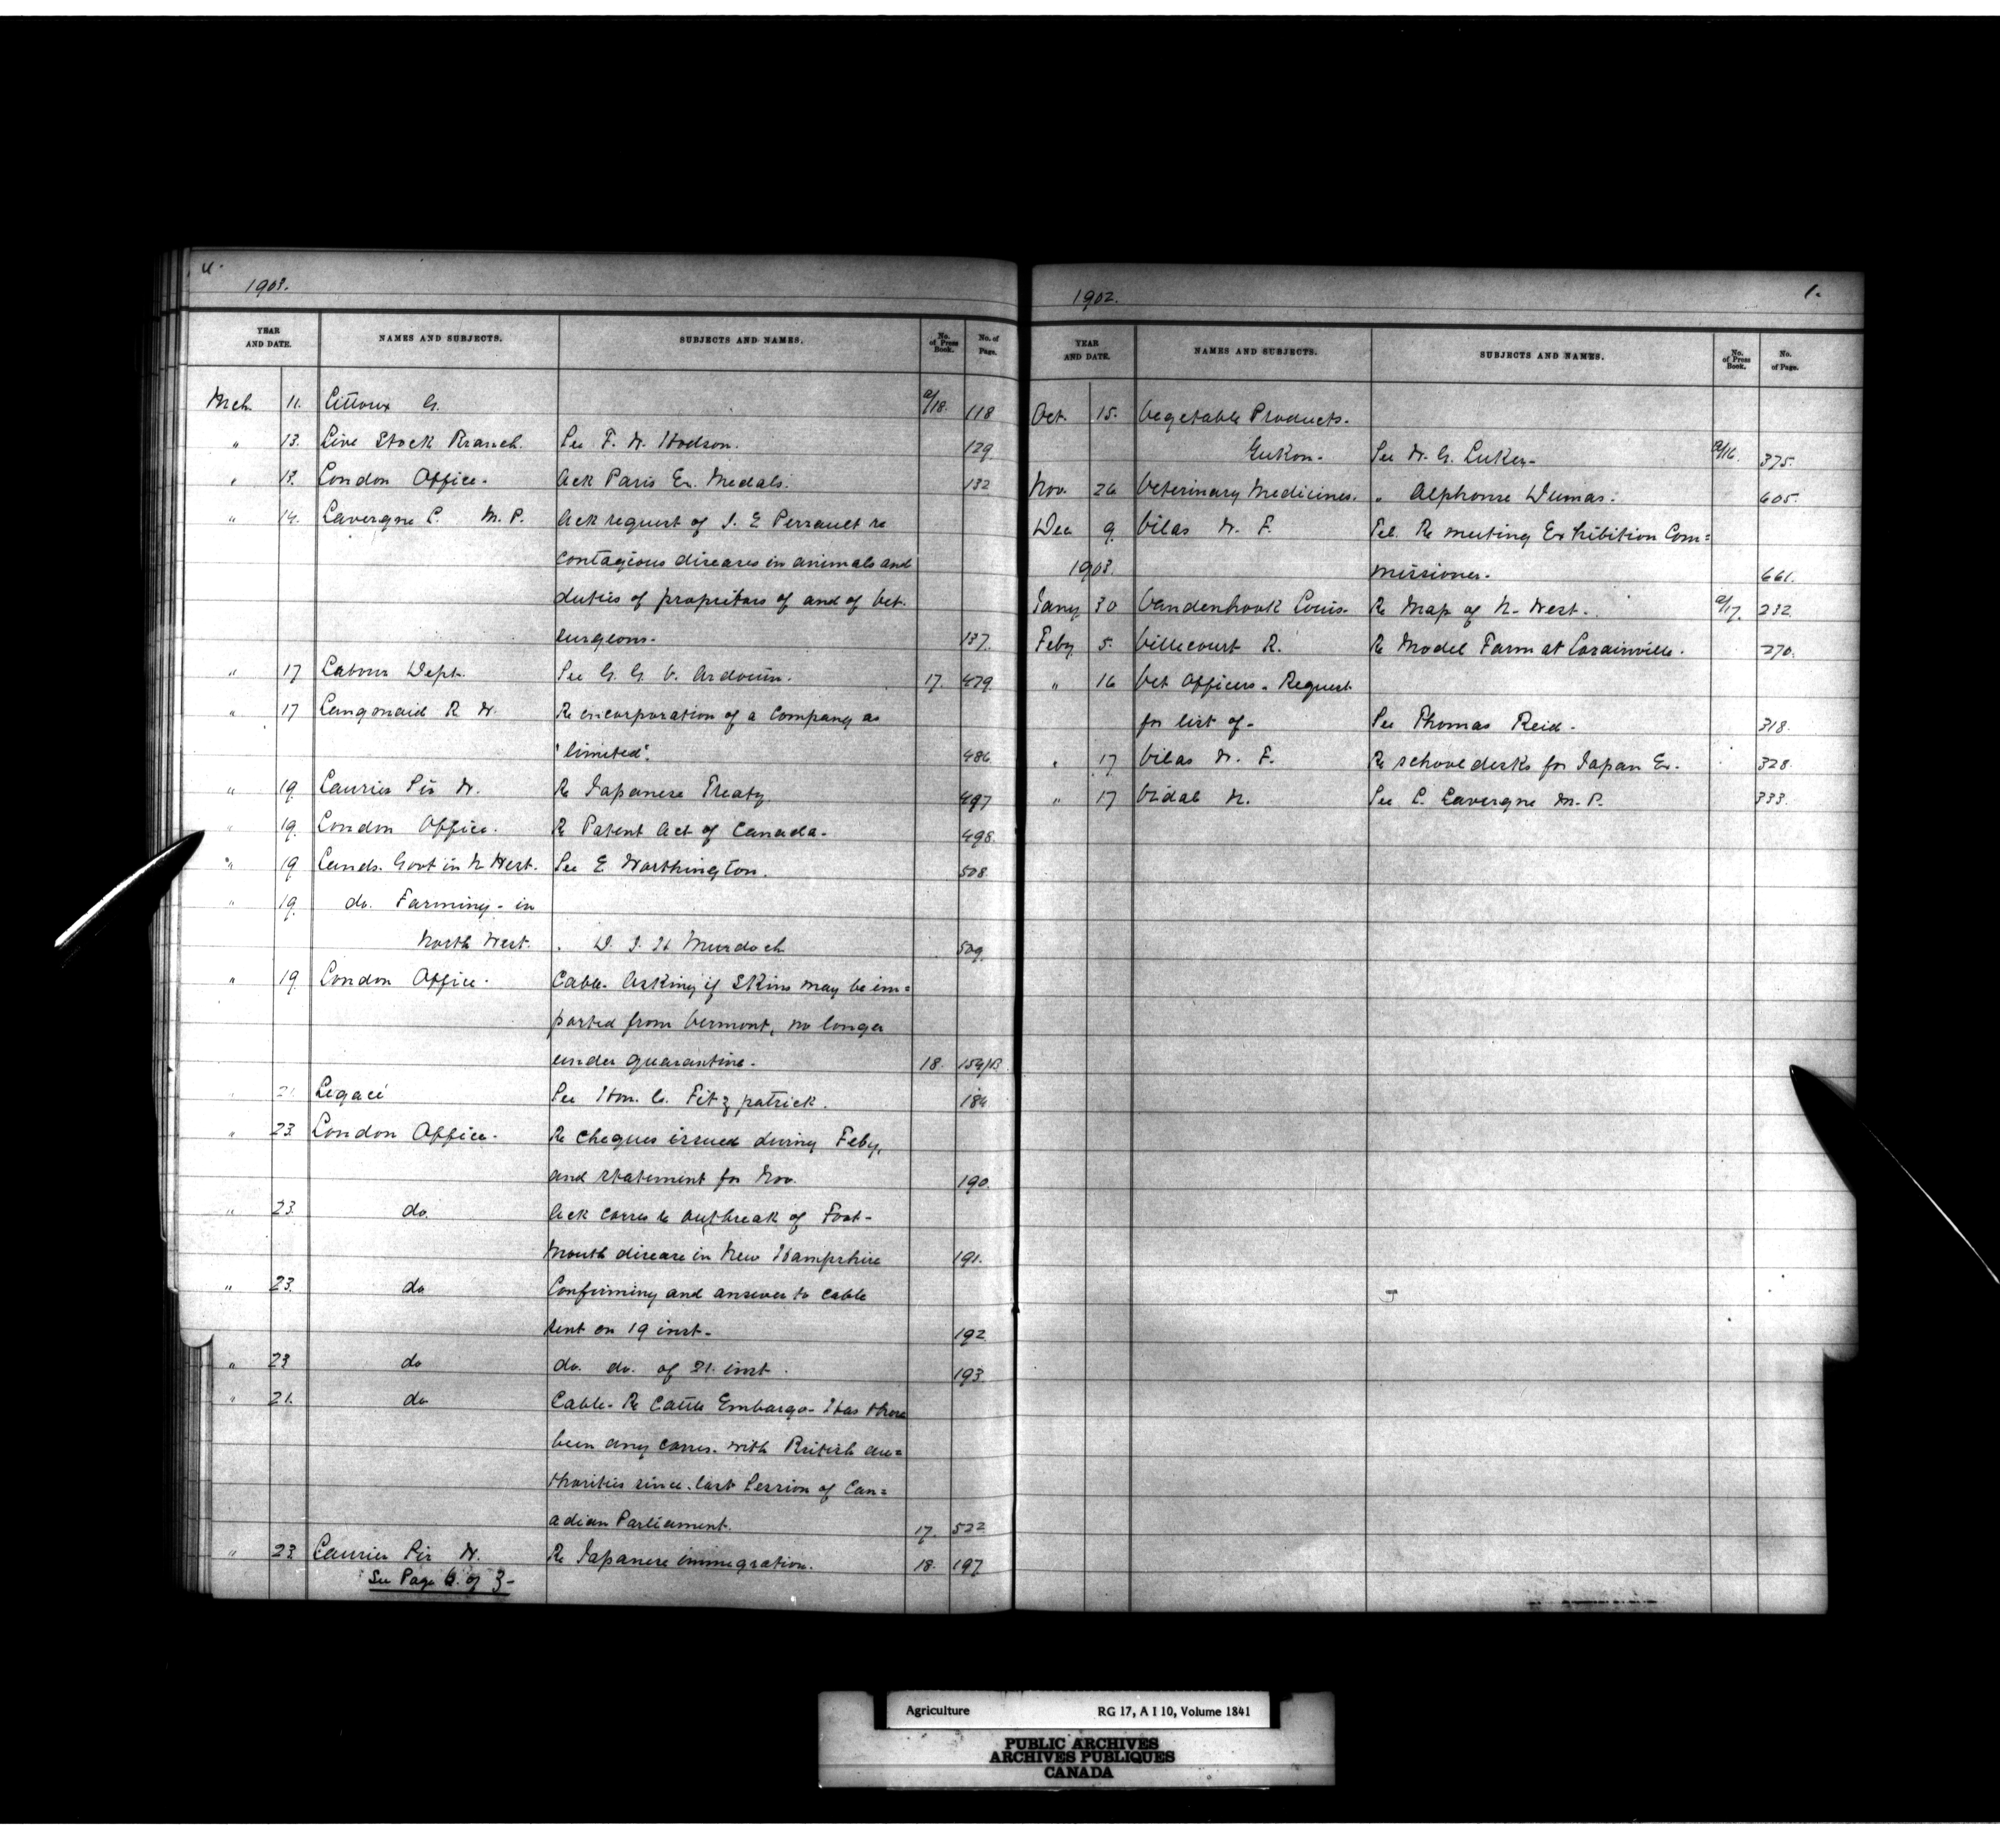 4.
1903.
YEAR AND DATE. NAMES AND SUBJECTS. SUBJECTS AND NAMES. No. of Press Book. No. of Page.
Mch 11. Littoux G. a/18. 118
" 13. Live Stock Branch. See F. W. Hodson. 129
" 13. London Office. Ack Paris Ex. Medals. 132
" 14. Lavergne L. M. P. Ack request of J. E Perrault re
contagious diseases in animals and
duties of propritors of and of Vet.
surgeons. 137.
" 17 Labour Dept. See G. G. V. Ardouin. 17. 479.
" 17 Langmaid R W. Re incorporation of a Company as
"limited". 486
" 19 Laurier Sir W. Re Japanese Treaty. 497
" 19. London Office. Re Patent Act of Canada. 498.
" 19 Lands. Govt in N West. See E Worthington. 508
" 19. do. Farming - in
North West. . D. J. H Murdoch 509.
" 19 London Office. Cable. Asking if Skins may be im=
ported from Vermont, no longer
under quarantine. 18. 154/B
" 21 Légacé See Hon. C. Fitzpatrick. 184
" 23. London Office. Re cheques issued during Feby,
and statement for Nov. 190.
" 23 do Ack corres re outbreak of Foot-
Mouth disease in New Hampshire 191.
" 23. do Confirming and answer to cable
sent on 19 inst. 192
" 23 do do. do. of 21. inst. 193.
" 21. do Cable. Re Cattle Embargo. Has there
been any corres. with British au=
thorities since last Session of Can=
adian Parliament. 17. 522
" 23 Laurier Sir W. Re Japanese immigration. 18. 197
See Page 6. of 3-
1902. 1.
YEAR AND DATE. NAMES AND SUBJECTS. SUBJECTS AND NAMES. No. of Press Book. No. of Page.
Oct. 15. Vegetable Products.
Yukon. See W. G. Luker. a/16. 375.
Nov. 26 Veterinary Medicines. " Alphonse Dumas. 605.
Dec 9. Vilas W. F. Tel. Re meeting Exhibition Com=
1903. missioner. 661.
Jany 30 Vandenhook Louis. Re Map of N. West. a/17. 232.
Feby 5. Villecourt R. Re Model Farm at Lorainville. 270.
" 16 Vet Officers. Request
for list of- See Thomas Reid. 318.
" 17 Vilas W. F. Re school desks for Japan Ex. 328.
" 17 Vidal N. See L. Lavergne M. P. 333.
Agriculture RG 17, A I 10, Volume 1841
PUBLIC ARCHIVES
ARCHIVES PUBLIQUES
CANADA